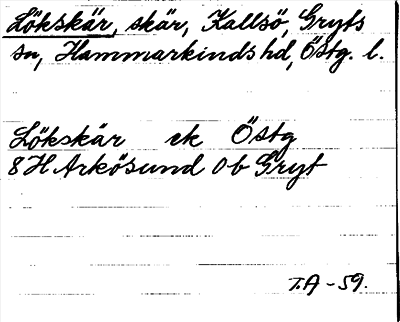 Lökskär, skär, Kallsö, Gryts
sn, Hammarkinds hd, Östg. l.
Lökskär ek Östg
8H Arkösund 0b Gryt
T.A -59.